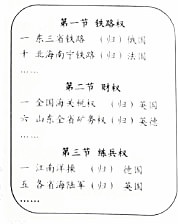 第一节 铁路权
一 东三省铁路 （归） 俄国
十 北海南宁铁路 （归） 法国
……
第二节 财权
一 全国海关税权 （归） 英国
六 山东全省矿务权 （归） 英德
……
第三节 练兵权
一 江南洋操 （归） 德国
五 各省海陆军 （归） 英国
……